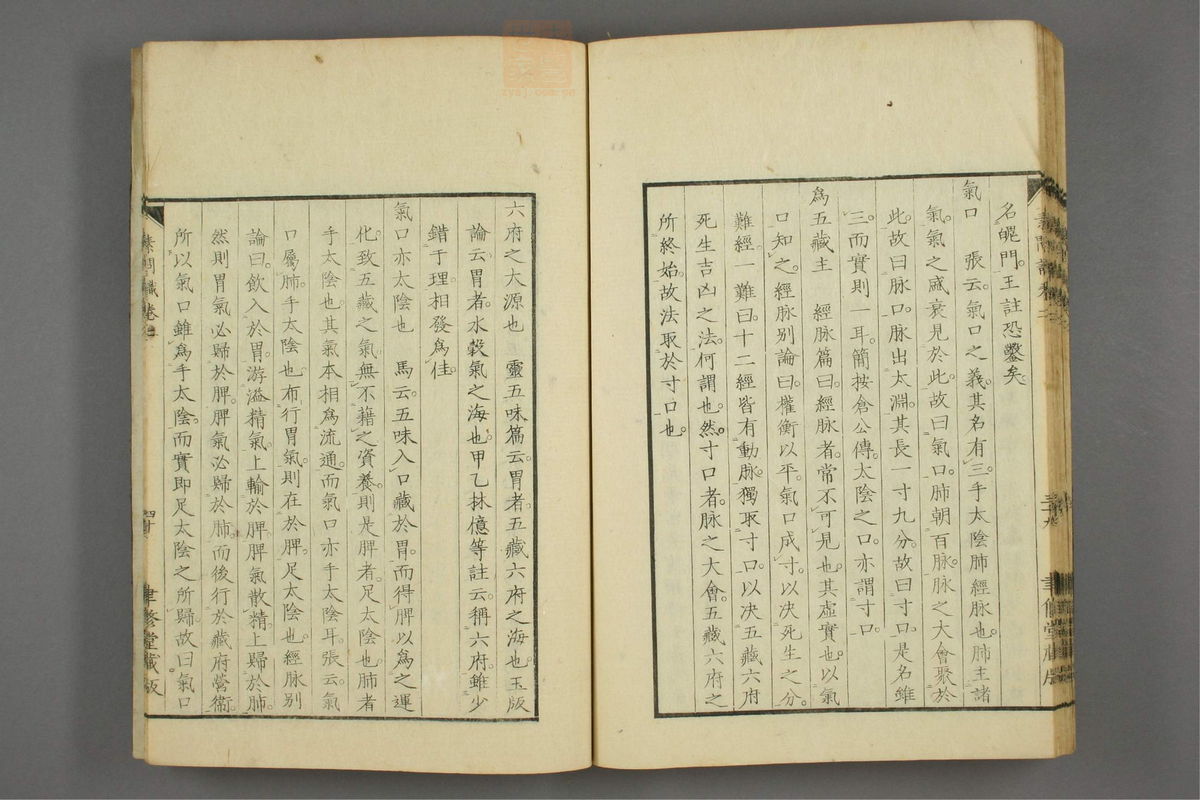 名魄門王註恐鑿矣
氣口　張云氣口之義其名有三手太陰肺經脉也肺主諸
氣氣之盛衰見於此故曰氣口肺朝百脉脉之大會聚於
此故曰脉口脉出太淵其長一寸九分故曰寸口是名雖
三而實則一耳簡按倉公傳太陰之口亦謂寸口
爲五藏主　經脉篇曰經脉者常不可見也其虛實也以氣
口知之經脉别論曰權衡以平氣口成寸以决死生之分
難經一難曰十二經皆有動脉獨取寸口以决五藏六府
死生吉凶之法何謂也然寸口者脉之大會五藏六府之
所終始故法取於寸口也
六府之大源也　靈五味篇云胃者五藏六府之海也玉版
論云胃者水穀氣之海也甲乙林億等註云稱六府雖少
錯于理相發爲佳
氣口亦太陰也　馬云五味入口藏於胃而得脾以爲之運
化致五藏之氣無不藉之資養則是脾者足太陰也肺者
手太陰也其氣本相爲流通而氣口亦手太陰耳張云氣
口屬肺手太陰也布行胃氣則在於脾足太陰也經脉别
論曰飲入於胃游溢精氣上輸於脾脾氣散精上歸於肺
然則胃氣必歸於脾脾氣必歸於肺而後行於藏府營衛
所以氣口雖爲手太陰而實即足太陰之所歸故曰氣口
素問識卷二
四十
聿修堂藏版